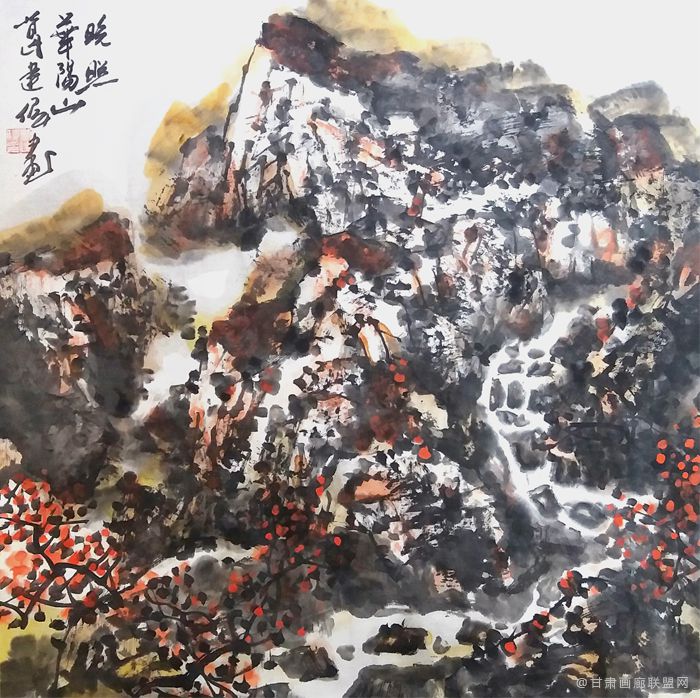 晚照
華陽山
建 畫
@甘肃画廊联盟网